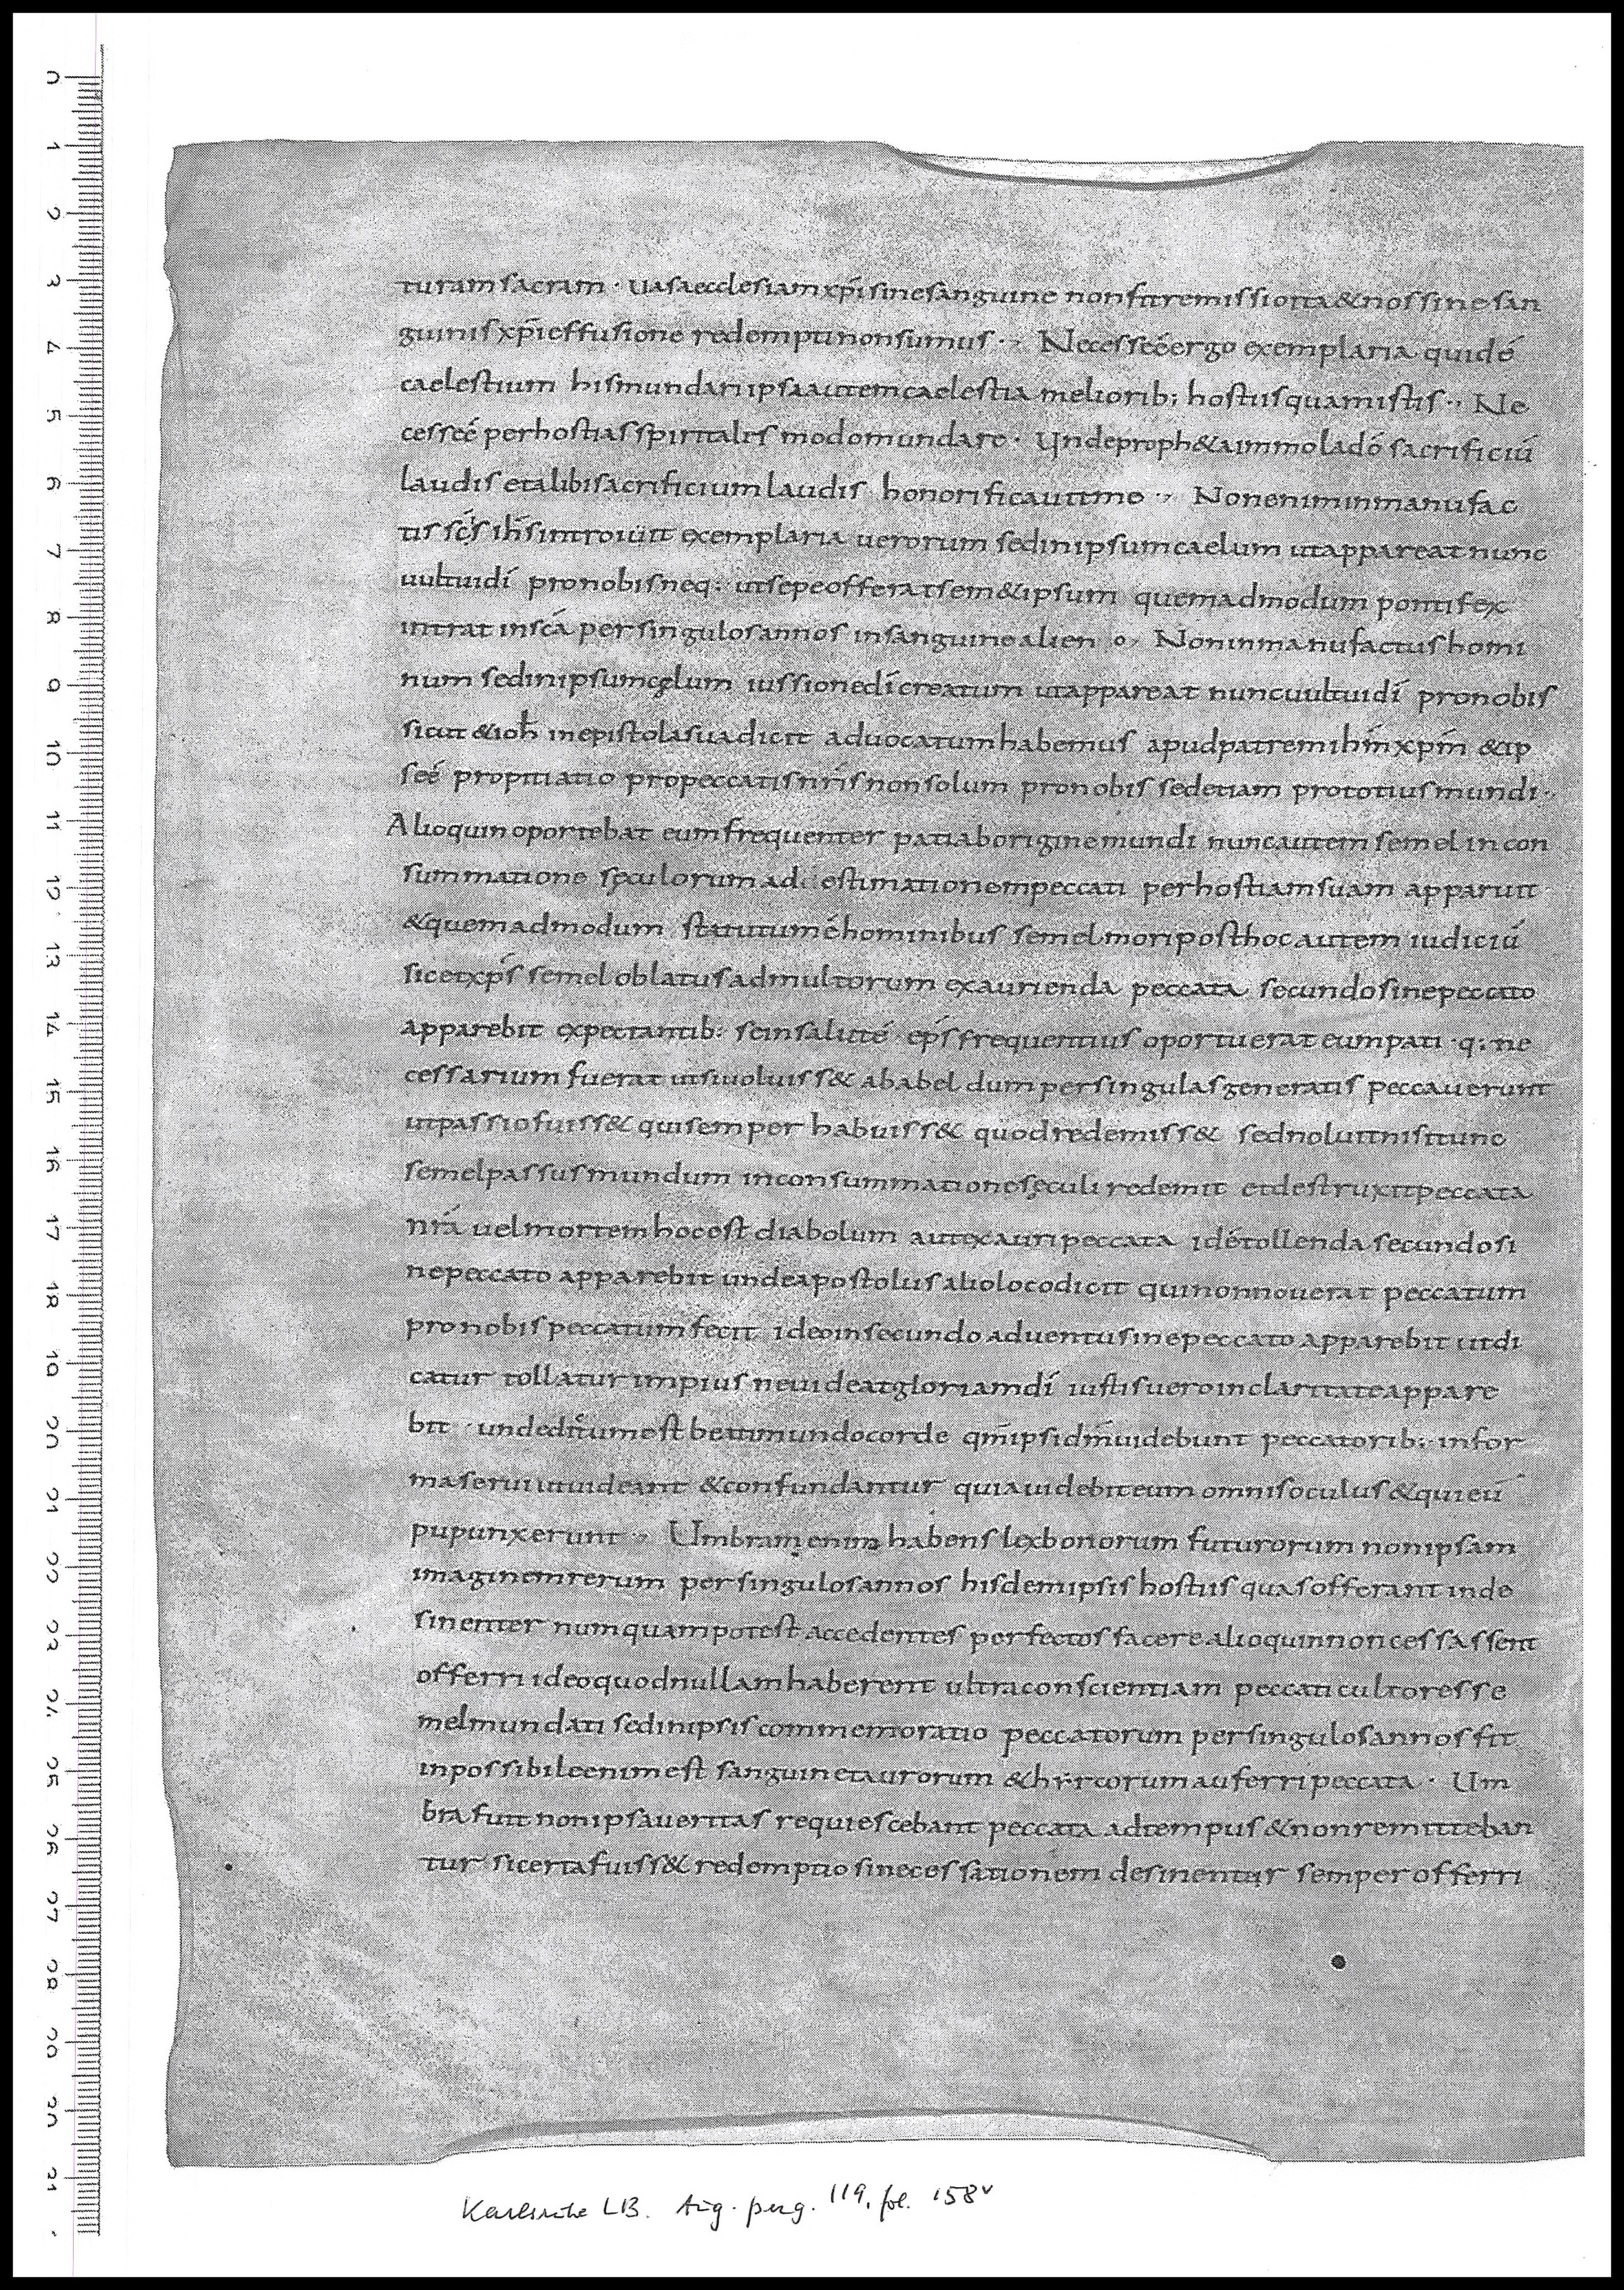 turam sacram · uasa ecclesiam xp̄i sine sanguine non fit remissio ita & nos sine san
guinis xp̄i effusione redempti non sumus ·, Necesse ē ergo exemplaria quidē
caelestium his mundari ipsa autem caelestia meliorib; hostiis quam istis ·, Ne
cesse ē per hostias spiritales modo mundare · Unde proph&a immola dō sacrificiū
laudis et alibi sacrificium laudis honorificauit me ·, Non enim in manufac
tis scīs ih̄s introiuit exemplaria uerorum sed in ipsum caelum ut appareat nunc
uultui dī pro nobis neq; ut sepe offerat sem&ipsum quemadmodum pontifex
intrat in scā per singulos annos in sanguine alieno ·, Non in manufactus homi
num sed in ipsum cęlum iussione dī creatum ut appareat nunc uultui dī pro nobis
sicut & ioh̄ in epistola sua dicit aduocatum habemus apud patrem ih̄m xp̄m & ip
se ē propitiatio pro peccatis nr̄is non solum pro nobis sed etiam pro totius mundi ·,
Alioquin oportebat eum frequenter pati ab origine mundi nunc autem semel in con
summatione sęculorum ad estimationem peccati per hostiam suam apparuit
& quemadmodum statutum ē hominibus semel mori post hoc autem iudiciū
sic et xp̄s semel oblatus ad multorum exaurienda peccata secundo sine peccato
apparebit expectantib; se in salutē ep̄s frequentius oportuerat eum pati · q; ne
cessarium fuerat ut si uoluiss& ab abel dum per singulas generatis peccauerunt
ut passio fuiss& qui semper habuiss& quod redemiss& sed noluit nisi tunc
semel passus mundum in consummatione sęculi redemit et destruxit peccata
nr̄a uel mortem hoc est diabolum aut exauri peccata id ē tollenda secundo si
ne peccato apparebit unde apostolus alio loco dicit qui non nouerat peccatum
pro nobis peccatum fecit ideo in secundo aduentu sine peccato apparebit ut di
catur tollatur impius ne uideat gloriam dī iustis uero in claritate appare
bit · unde dictum est beati mundo corde qm̄ ipsi dm̄ uidebunt peccatorib; in for
ma serui ut uideant & confundantur quia uidebit eum omnis oculus & qui eū
pupunxerunt ·, Umbram enim habens lex bonorum futurorum non ipsam
imaginem rerum per singulos annos hisdem ipsis hostiis quas offerant inde
sinenter numquam potest accedentes perfectos facere alioquin non cessassent
offerri ideo quod nullam haberent ultra conscientiam peccati cultores se
mel mundati sed in ipsis commemoratio peccatorum per singulos annos fit
inpossibile enim est sanguine taurorum & hyrcorum auferri peccata · Um
bra fuit non ipsa ueritas requiescebant peccata ad tempus & non remitteban
tur si certa fuiss& redemptio sine cessationem desinentur semper offerri
Karlsruhe LB. Aug. perg. 119, fol. 158v